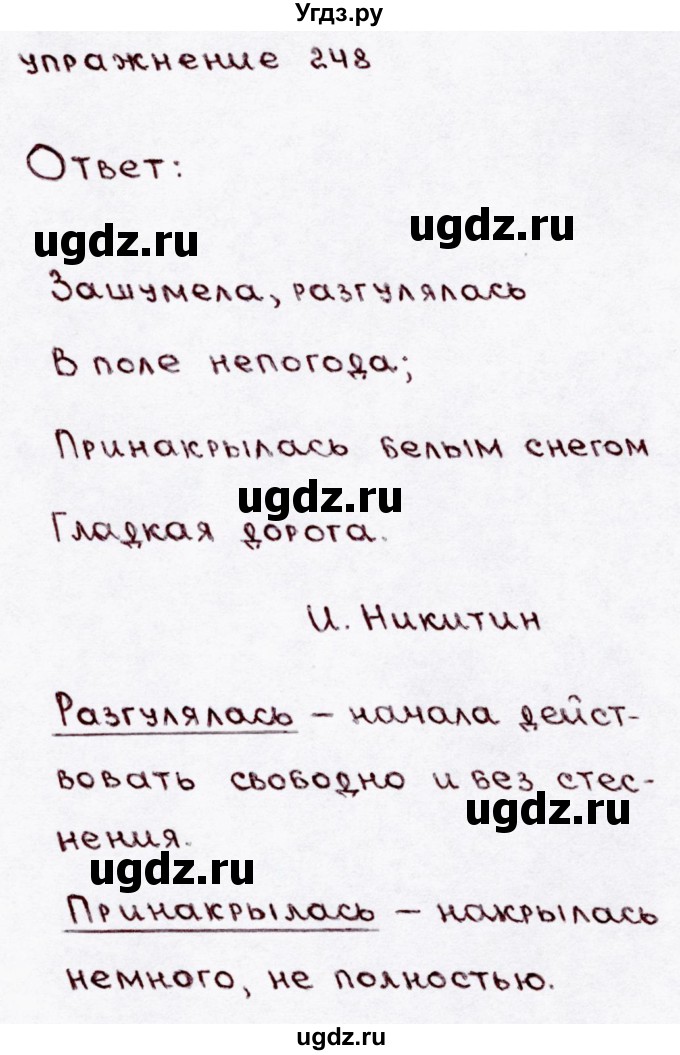 Угдз.ру
упражнение 248
Ответ:
ugdz.ru
ugdz.ru
Зашумела, разгулялась
В поле непогода;
Принакрылась белым снегом
ugdz.ru
Гладкая дорога.
И. Никитин
Разгулялась – начала дейст-
вовать свободно и без стес-
ugdz.ru
нения.
ugdz.ru
Принакрылась – накрылась
немного, не полностью.
ugdz.ru